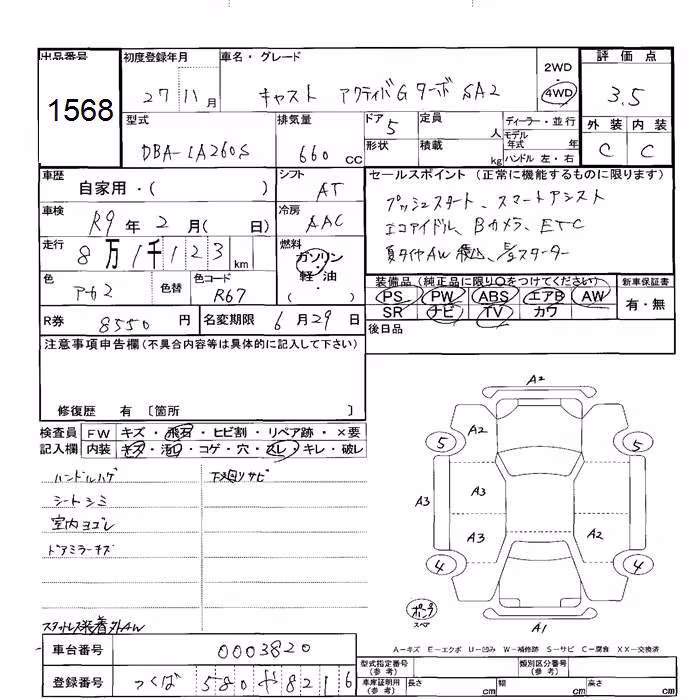 出品番号
1568
初度登録年月
27 11 月
車名・グレード
キャスト アクティバG ターボ SA2
2WD
4WD
評価点
3.5
外装 内装
C C
型式
DBA-LA260S
排気量
660 cc
ドア 5
形状
定員 人
積載 kg
ディーラー・並行
モデル年式 年
ハンドル 左・右
車歴
自家用・( )
シフト
AT
車検
R9 年 2 月( 日)
冷房
AAC
走行
8万1千123 km
燃料
ガソリン
軽・油
( )
色
アカ2
色替
色コード
R67
R券
8550 円
名変期限
6 月 29 日
セールスポイント(正常に機能するものに限ります)
プッシュスタート、スマートアシスト
エコアイドル、Bカメラ、ETC
夏タイヤAW スターター
装備品(純正品に限り○をつけてください)
PS PW ABS エアB AW
SR ナビ TV カワ
新車保証書
有・無
後日品
注意事項申告欄(不具合内容等は具体的に記入して下さい)
修復歴 有 〔箇所 〕
検査員記入欄
FW キズ・飛石・ヒビ割・リペア跡・×要
内装 キズ・汚れ・コゲ・穴・スレ・キレ・破レ
ハンドルハゲ
シートシミ
室内ヨゴレ
ドアミラーキズ
下廻りサビ
スタットレス装着外AW
A2
5 A2 5
A3 A3
A3 A2
4 4
パンク
スペア
A1
A-キズ E-エクボ U-凹み W-補修跡 S-サビ C-腐食 XX-交換済
車台番号
0003820
登録番号
つくば 580 や 8216
型式指定番号(参考)
類別区分番号(参考)
車庫証明用(参考)
長さ cm 幅 cm 高さ cm